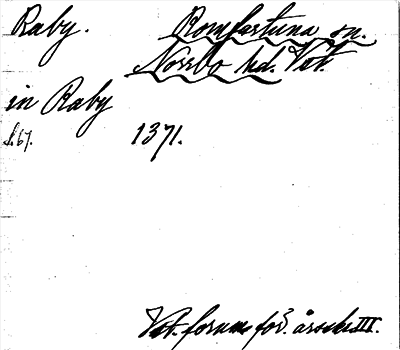 Raby. Romfartuna sn.
Norrbo hd. Vst.
in Raby
s.67. 1371.
Vst. fornm för. årsskr III.